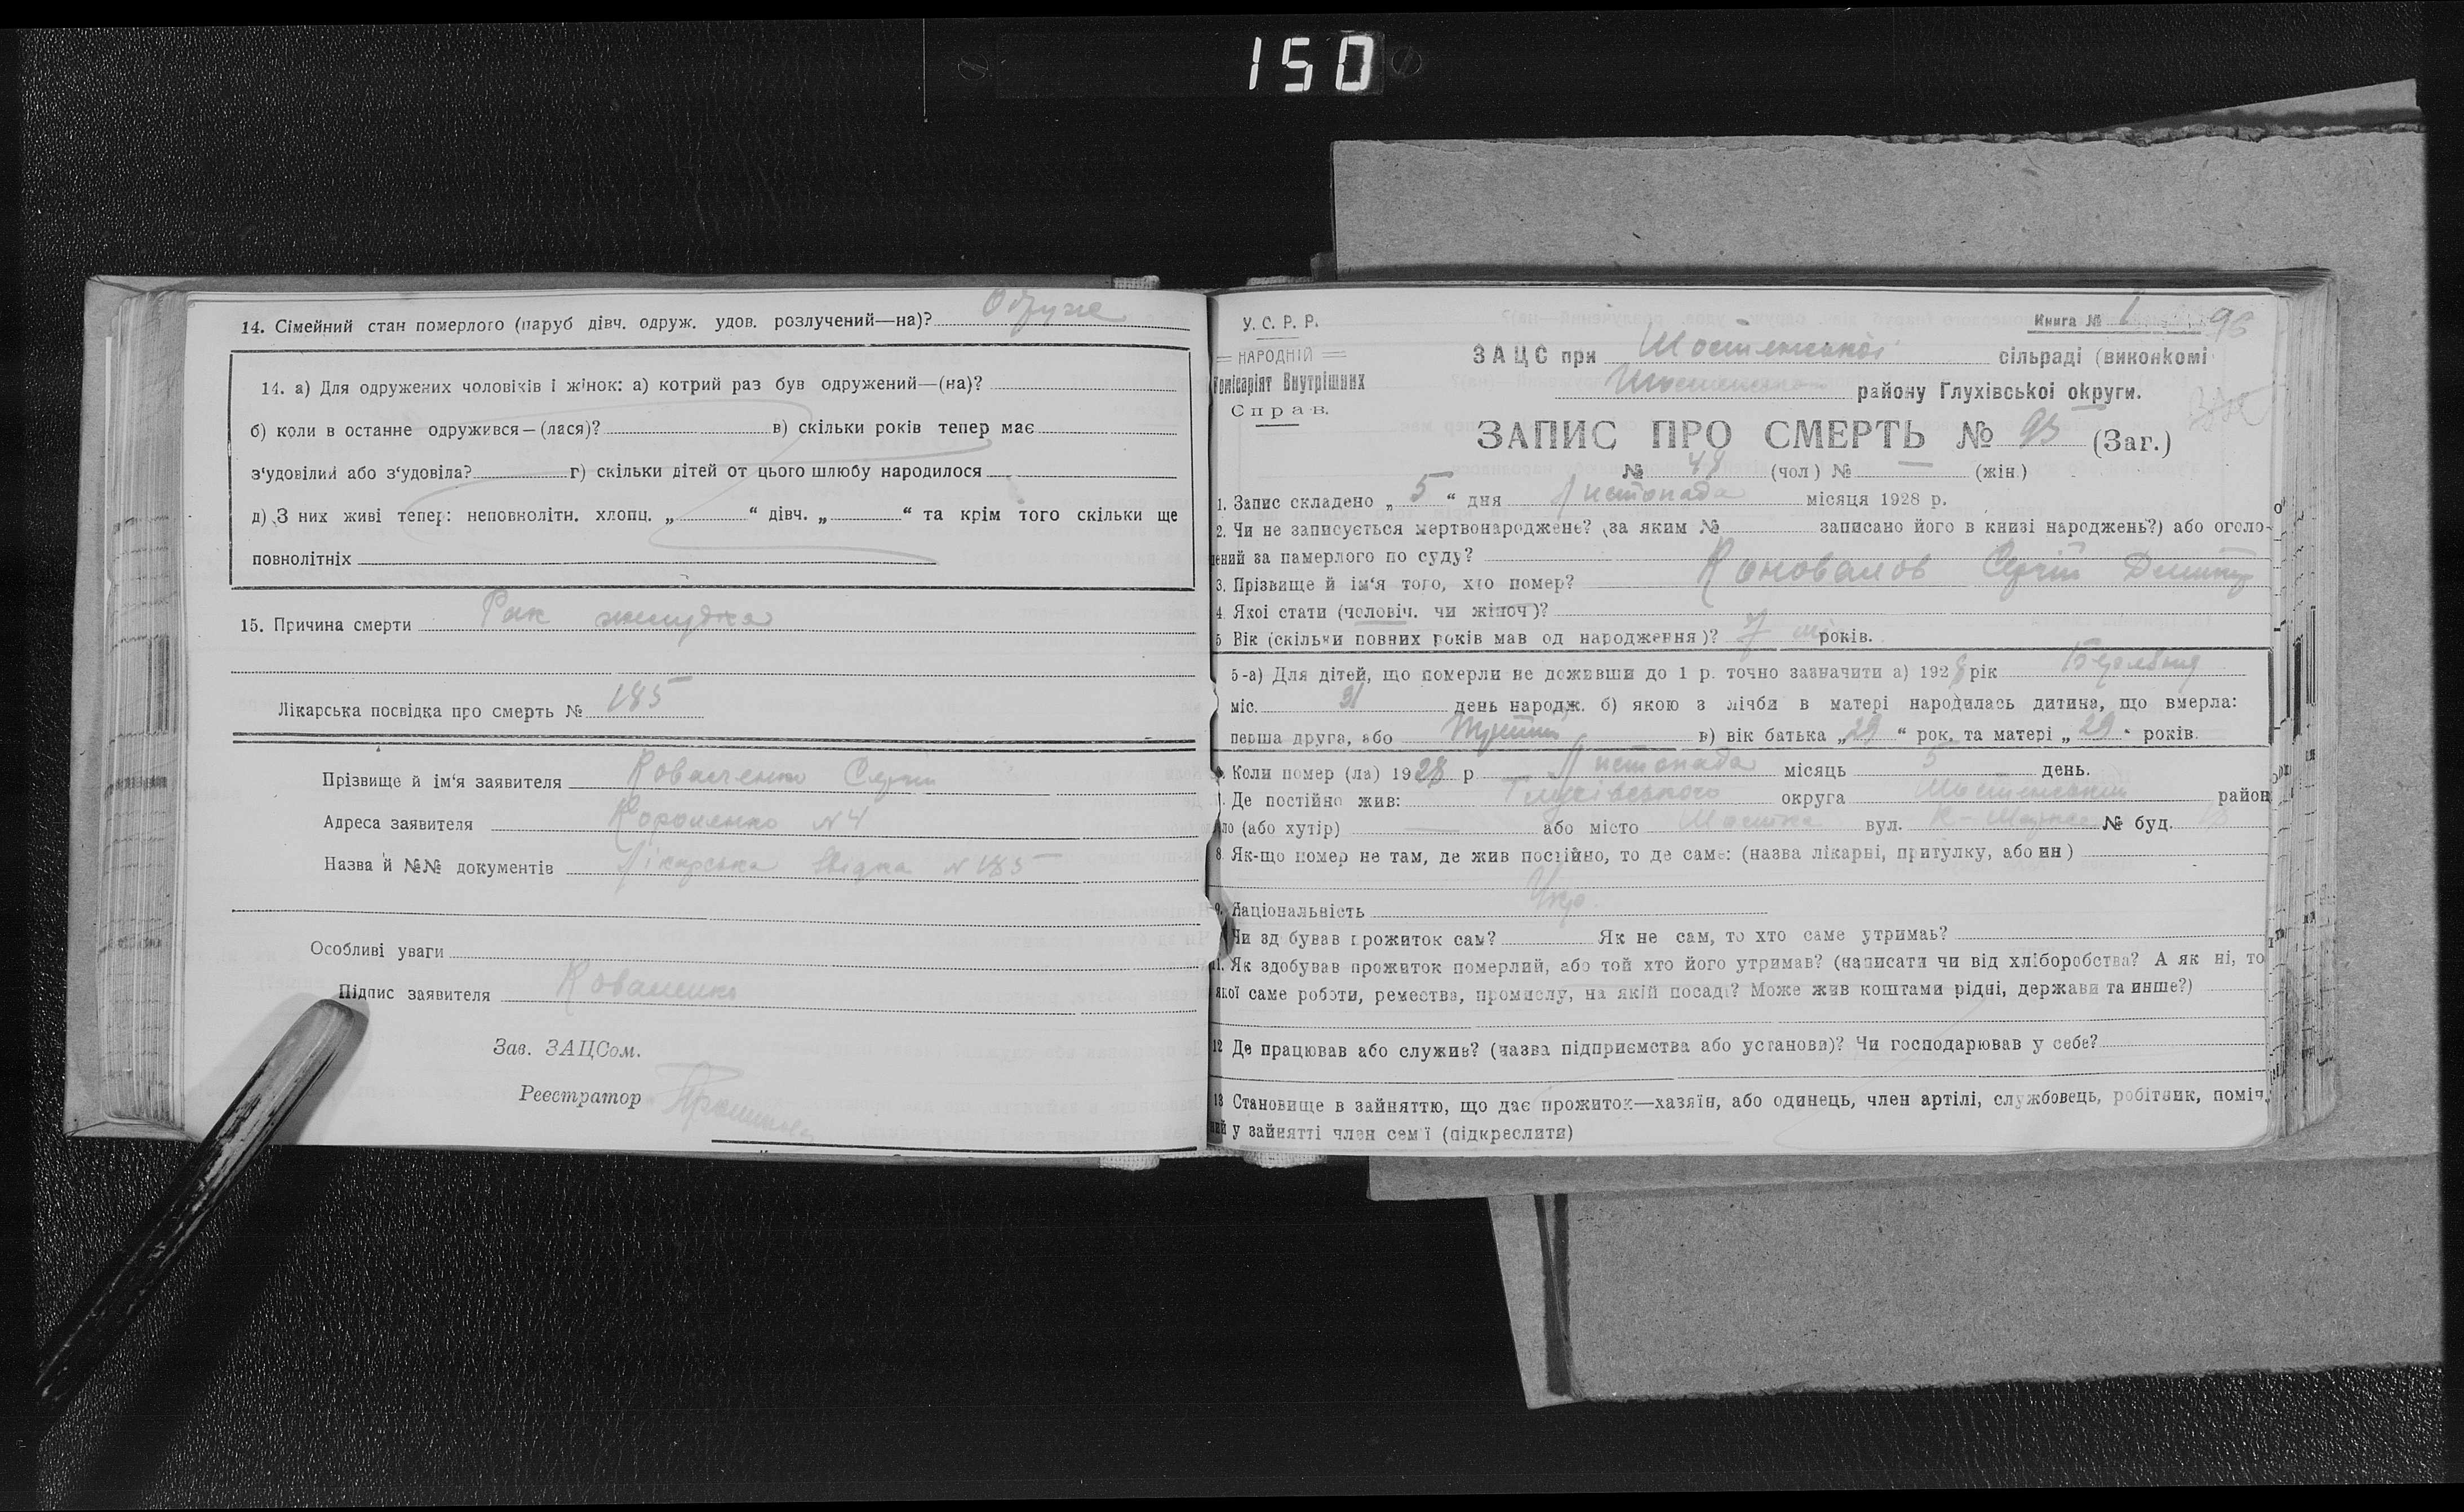 150
14. Сімейний стан померлого (паруб дівч. одруж. удов. розлучений—на)? Одруже
14. а) Для одружених чоловіків і жінок: а) котрий раз був одружений—(на)?
б) коли в останнє одружився—(лася)? в) скільки років тепер має
з'удовілий або з'удовіла? г) скільки дітей от цього шлюбу народилося
д) З них живі тепер: неповнолітн. хлопц. „ “ дівч. „ “ та крім того скільки ще
повнолітніх
15. Причина смерти Рак жилудка
Лікарська посвідка про смерть № 185
Прізвище й ім'я заявителя Коваленко Сергій
Адреса заявителя Короленко №4
Назва й №№ документів Лікарська № 185
Особливі уваги
Підпис заявителя Коваленко
Зав. ЗАЦСом.
Реєстратор
У. С. Р. Р.
НАРОДНІЙ
Комісаріят Внутрішних
Справ.
Книга № 1 96
ЗАЦС при Шостенської сільраді (виконкомі
району Глухівської округи.
ЗАПИС ПРО СМЕРТЬ № 95 (Заг.)
№ 48 (чол) № — (жін.)
1. Запис складено „ 5 “ дня Листопада місяця 1928 р.
2. Чи не записується мертвонароджене? (за яким № записано його в книзі народжень?) або оголо-
шений за памерлого по суду?
3. Прізвище й ім'я того, хто помер? Коновалов Сергій
4. Якої стати (чоловіч. чи жіноч)?
5 Вік (скільки повних років мав од народження)? 7 міс років.
5-а) Для дітей, що померли не доживши до 1 р. точно зазначити а) 1928 рік
міс. 31 день народж. б) якою з лічби в матері народилась дитина, що вмерла:
перша друга, або в) вік батька „29“ рок. та матері „29“ років.
Коли помер (ла) 1928 р Листопада місяць 5 день.
Де постійно жив: Глухівського округа Шостенський район
ло (або хутір) — або місто Шостка вул. К-Маркса № буд.
8. Як-що помер не там, де жив постійно, то де саме: (назва лікарні, притулку, або ин)
9. Національність Укр.
Чи здобував прожиток сам? Як не сам, то хто саме утримав?
11. Як здобував прожиток померлий, або той хто його утримав? (написати чи від хліборобства? А як ні, то
якої саме роботи, ремества, промислу, на якій посаді? Може жив коштами рідні, держави та инше?)
12 Де працював або служив? (назва підприємства або установи)? Чи господарював у себе?
13 Становище в зайняттю, що дає прожиток—хазяїн, або одинець, член артілі, службовець, робітник, поміч,
ний у зайнятті член сем'ї (підкреслити)